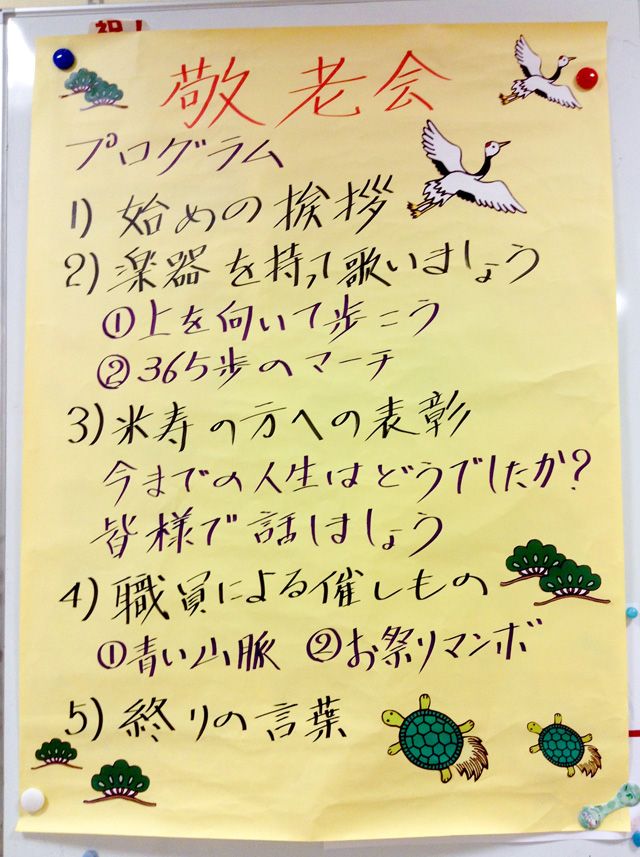 祝！
敬老会
プログラム
1) 始めの挨拶
2) 楽器を持って歌いましょう
①上を向いて歩こう
②365歩のマーチ
3) 米寿の方への表彰
今までの人生はどうでしたか?
皆様で話しましょう
4) 職員による催しもの
①青い山脈 ②お祭りマンボ
5) 終りの言葉